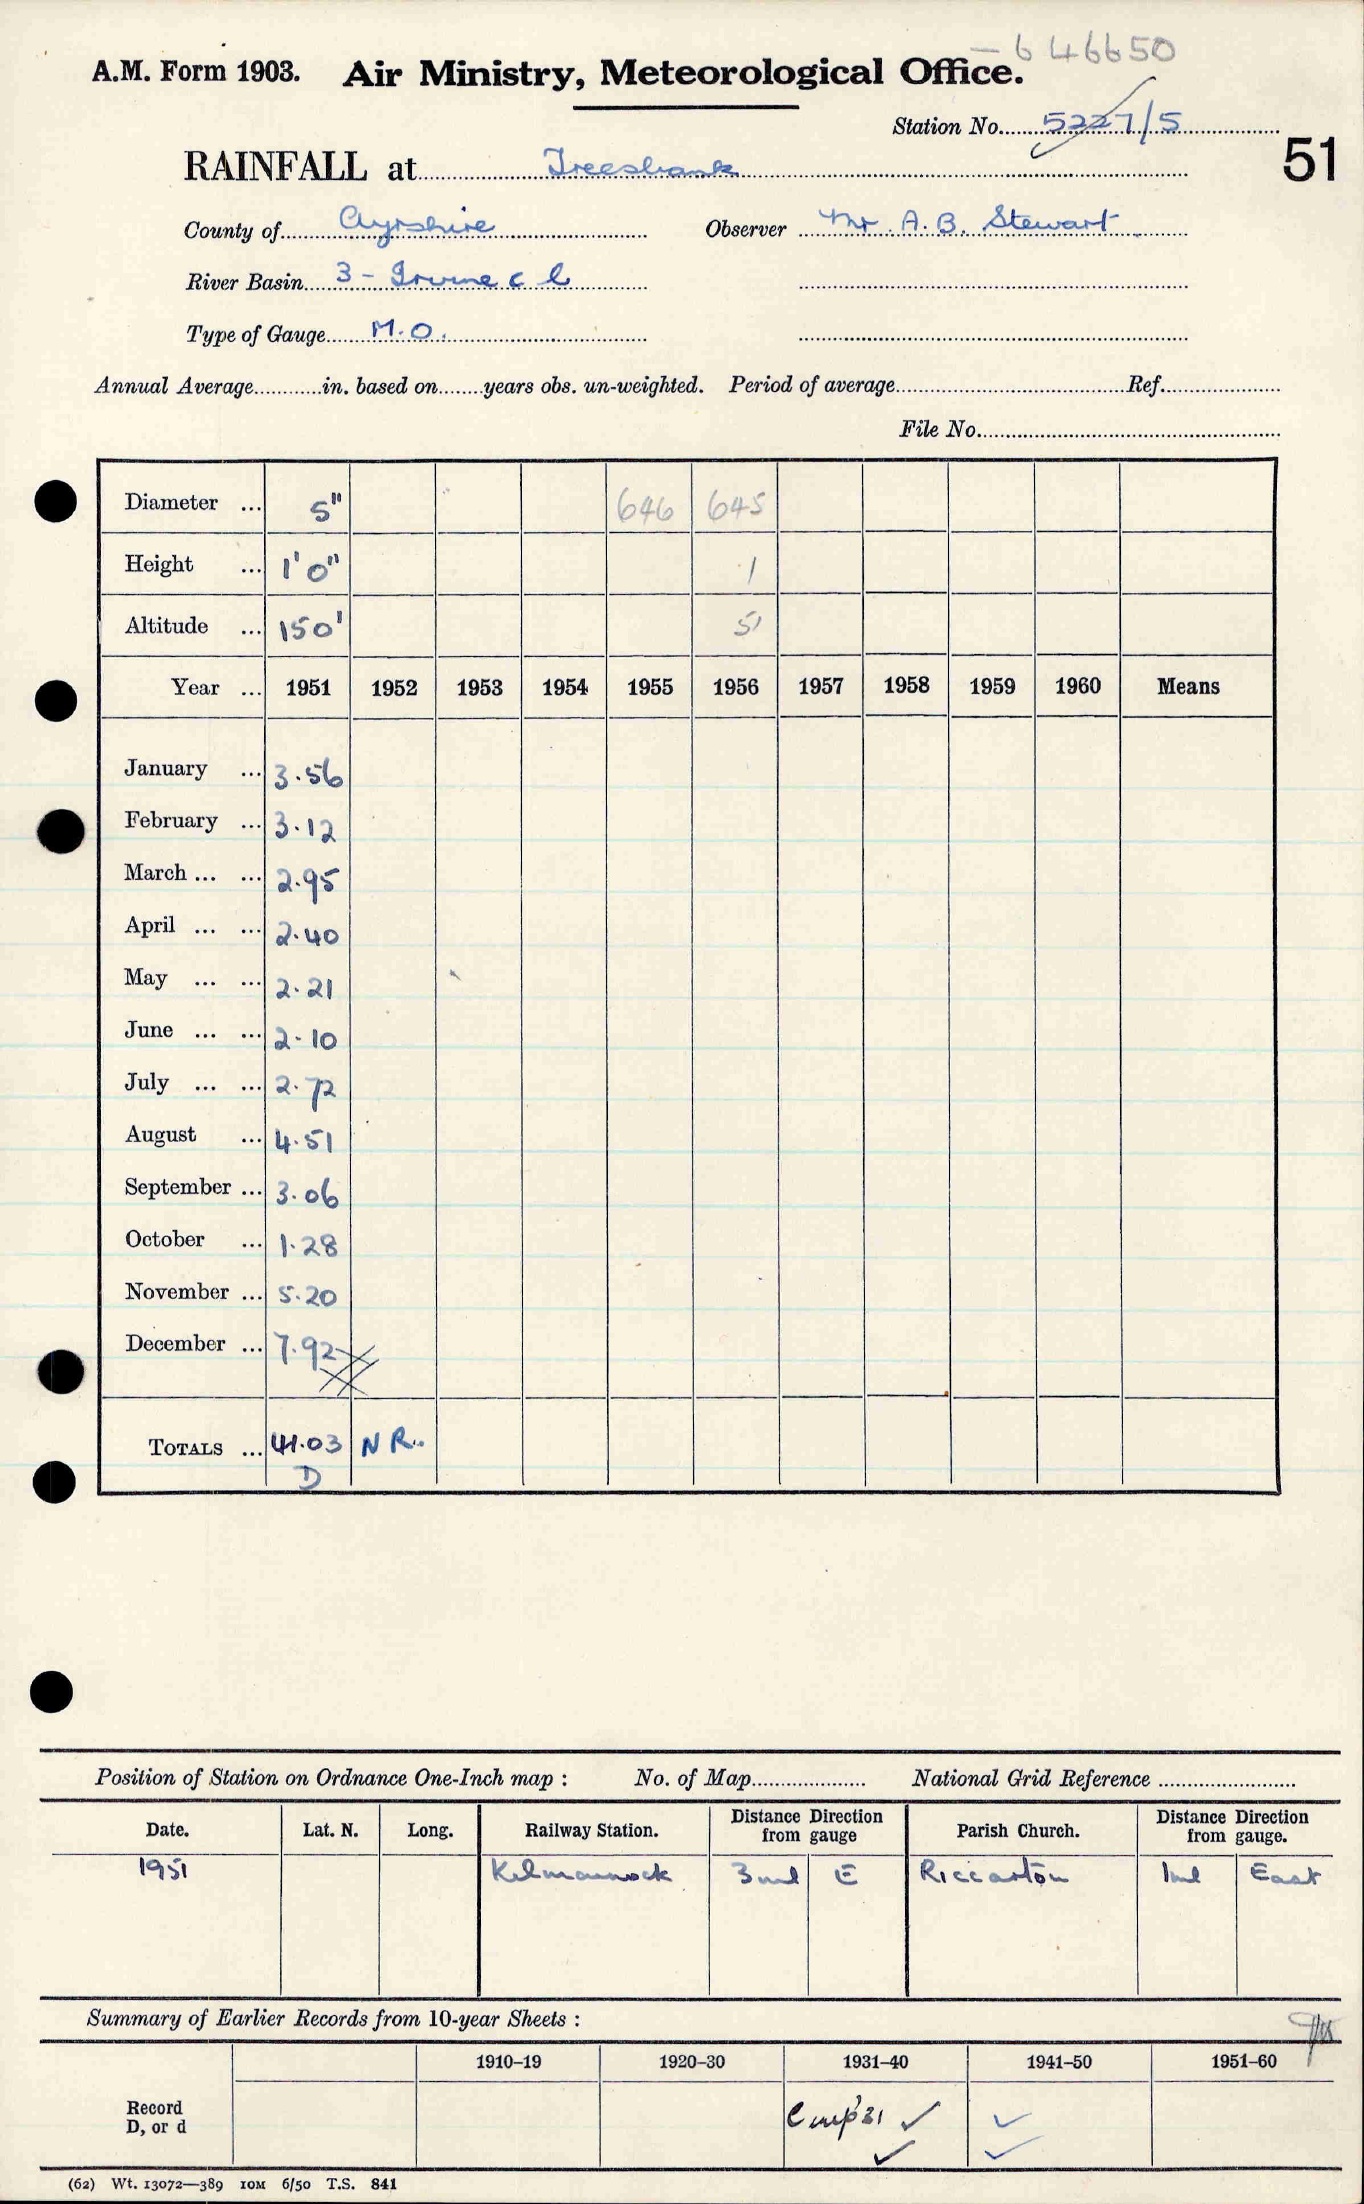 646650
A.M. Form 1903. Air Ministry, Meteorological Office.
Station No. 5227/5
51
RAINFALL at Treesbank
County of Ayrshire Observer Mr. A. B. Stewart
River Basin 3 - Irvine c l
Type of Gauge M.O.
Annual Average in. based on years obs. un-weighted. Period of average Ref.
File No.
Diameter ... 5" 646 645
Height ... 1' 0" 1
Altitude ... 150' 51
Year ... 1951 1952 1953 1954 1955 1956 1957 1958 1959 1960 Means
January ... 3.56
February ... 3.12
March ... ... 2.95
April ... ... 2.40
May ... ... 2.21
June ... ... 2.10
July ... ... 2.72
August ... 4.51
September ... 3.06
October ... 1.28
November ... 5.20
December ... 7.92
TOTALS ... 41.03 N R..
D
Position of Station on Ordnance One-Inch map : No. of Map National Grid Reference
Date. Lat. N. Long. Railway Station. Distance Direction from gauge Parish Church. Distance Direction from gauge.
1951 Kilmarnock 3 ml E Riccarton 1 ml East
Summary of Earlier Records from 10-year Sheets :
1910–19 1920–30 1931–40 1941–50 1951–60
Record D, or d
(62) Wt. 13072—389 10M 6/50 T.S. 841